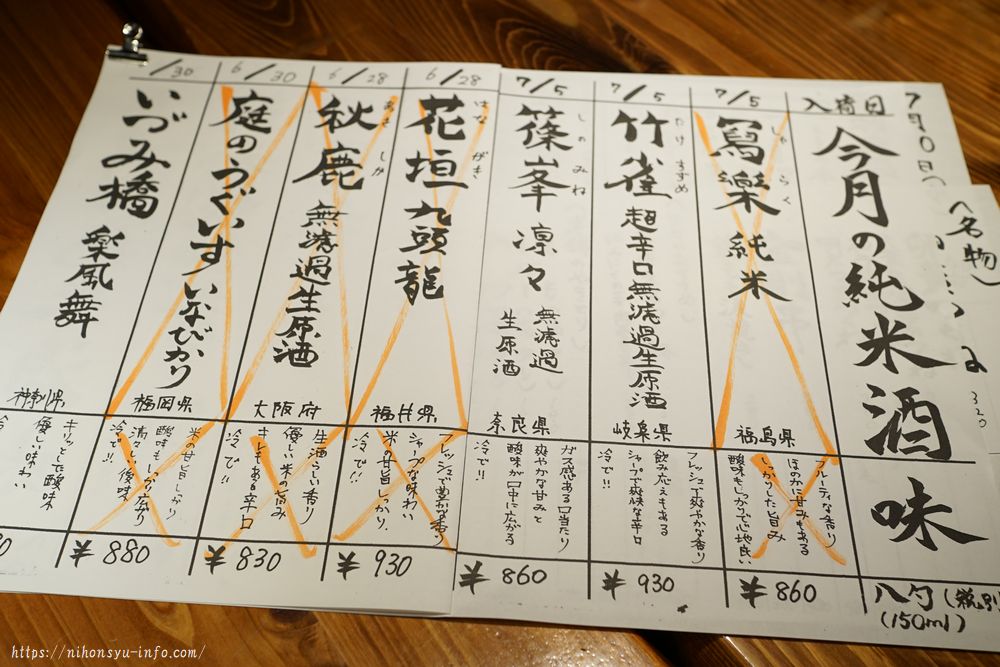 入荷日
今月の純米酒
味
八勺(税別)
(150ml)
7/5
しゃらく
寫樂 純米
福島県
フルーティな香り
ほのかに甘みもある
しっかりした旨み
酸味もしっかりで心地良い
¥860
7/5
たけすずめ
竹雀 超辛口無濾過生原酒
岐阜県
フレッシュで爽やかな香り
飲み応えもある
シャープで爽快な辛口
冷で!!
¥930
7/5
しのみね
篠峯 凛々 無濾過
生原酒
奈良県
ガス感ある口当たり
爽やかな甘みと
酸味が口中に広がる
冷で!!
¥860
6/28
はながき
花垣 九頭龍
福井県
フレッシュで豊かな香り
シャープな味わい
米の甘旨しっかり。
冷で!!
¥930
6/28
あきしか
秋鹿 無濾過生原酒
大阪府
生酒らしい香り
優しい米の旨み
キレもある辛口
冷で!!
¥830
6/30
庭のうぐいす いなびかり
福岡県
米の甘旨しっかり
酸味もしっかり広がり
清々しい後味
冷で!!
¥880
/30
いづみ橋 楽風舞
神奈川県
キリッとして酸味
優しい味わい
冷で!!
(名物)
320
https://nihonsyu-info.com/